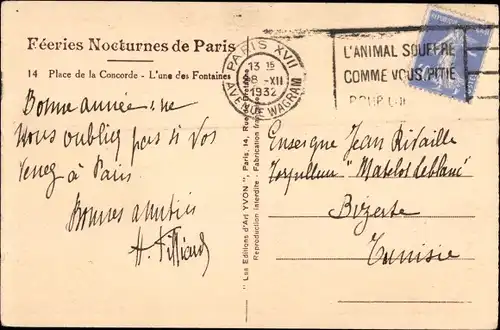 Féeries Nocturnes de Paris
14 Place de la Concorde - L'une des Fontaines
Bonne année, ne
nous oubliez pas si vos
venez à Paris
Bonnes amitiés
"Les Editions d'Art YVON", Paris, 14, Rue de Bretagne
Reproduction interdite - Fabrication française
PARIS XVII
13 15
8 -XII
1932
AVENUE WAGRAM
L'ANIMAL SOUFFRE
COMME VOUS PITIÉ
POUR LUI
Enseigne Jean
Torpilleur "Matelot Leblanc"
Bizerte
Tunisie